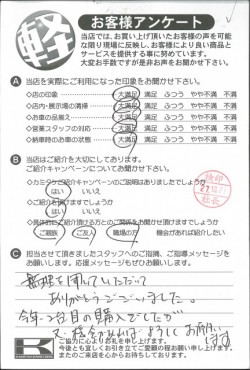 軽
お客様アンケート
当店では、お買い上げ頂いたお客様の声を可能
な限り現場に反映し、お客様により良い商品と
サービスを提供する事に努めています。
大変お手数ですが是非お声をお聞かせ下さい。
A 当店を実際にご利用になった印象をお聞かせ下さい。
◇店の印象 大満足 満足 ふつう やや不満 不満
◇店内・展示場の清掃 大満足 満足 ふつう やや不満 不満
◇お車の品揃え 大満足 満足 ふつう やや不満 不満
◇営業スタッフの対応 大満足 満足 ふつう やや不満 不満
◇納車時のお車の状態 大満足 満足 ふつう やや不満 不満
B 当店はご紹介を大切にしております。
ご紹介キャンペーンについてお聞かせ下さい。
◇カミタケご紹介キャンペーンのご説明はありましたでしょうか
はい いいえ
◇ご紹介を頂けますでしょうか
はい いいえ
ご家族 ご友人 職場の方 機会があれば紹介したい
検印
社長
C 担当させて頂きましたスタッフへのご指摘、ご指導メッセージを
お願いします。応援メッセージもぜひお願いします。
無理を聞いていただいて
ありがとうございました。
今年2台目の購入でしたが
又、機会があれば よろしくお願い
します
K
ご協力に心よりお礼を申し上げます。
今後とも宜しくお引き立てご愛顧の程お願い申し上げます。
またのご来店を心からお待ちしております。